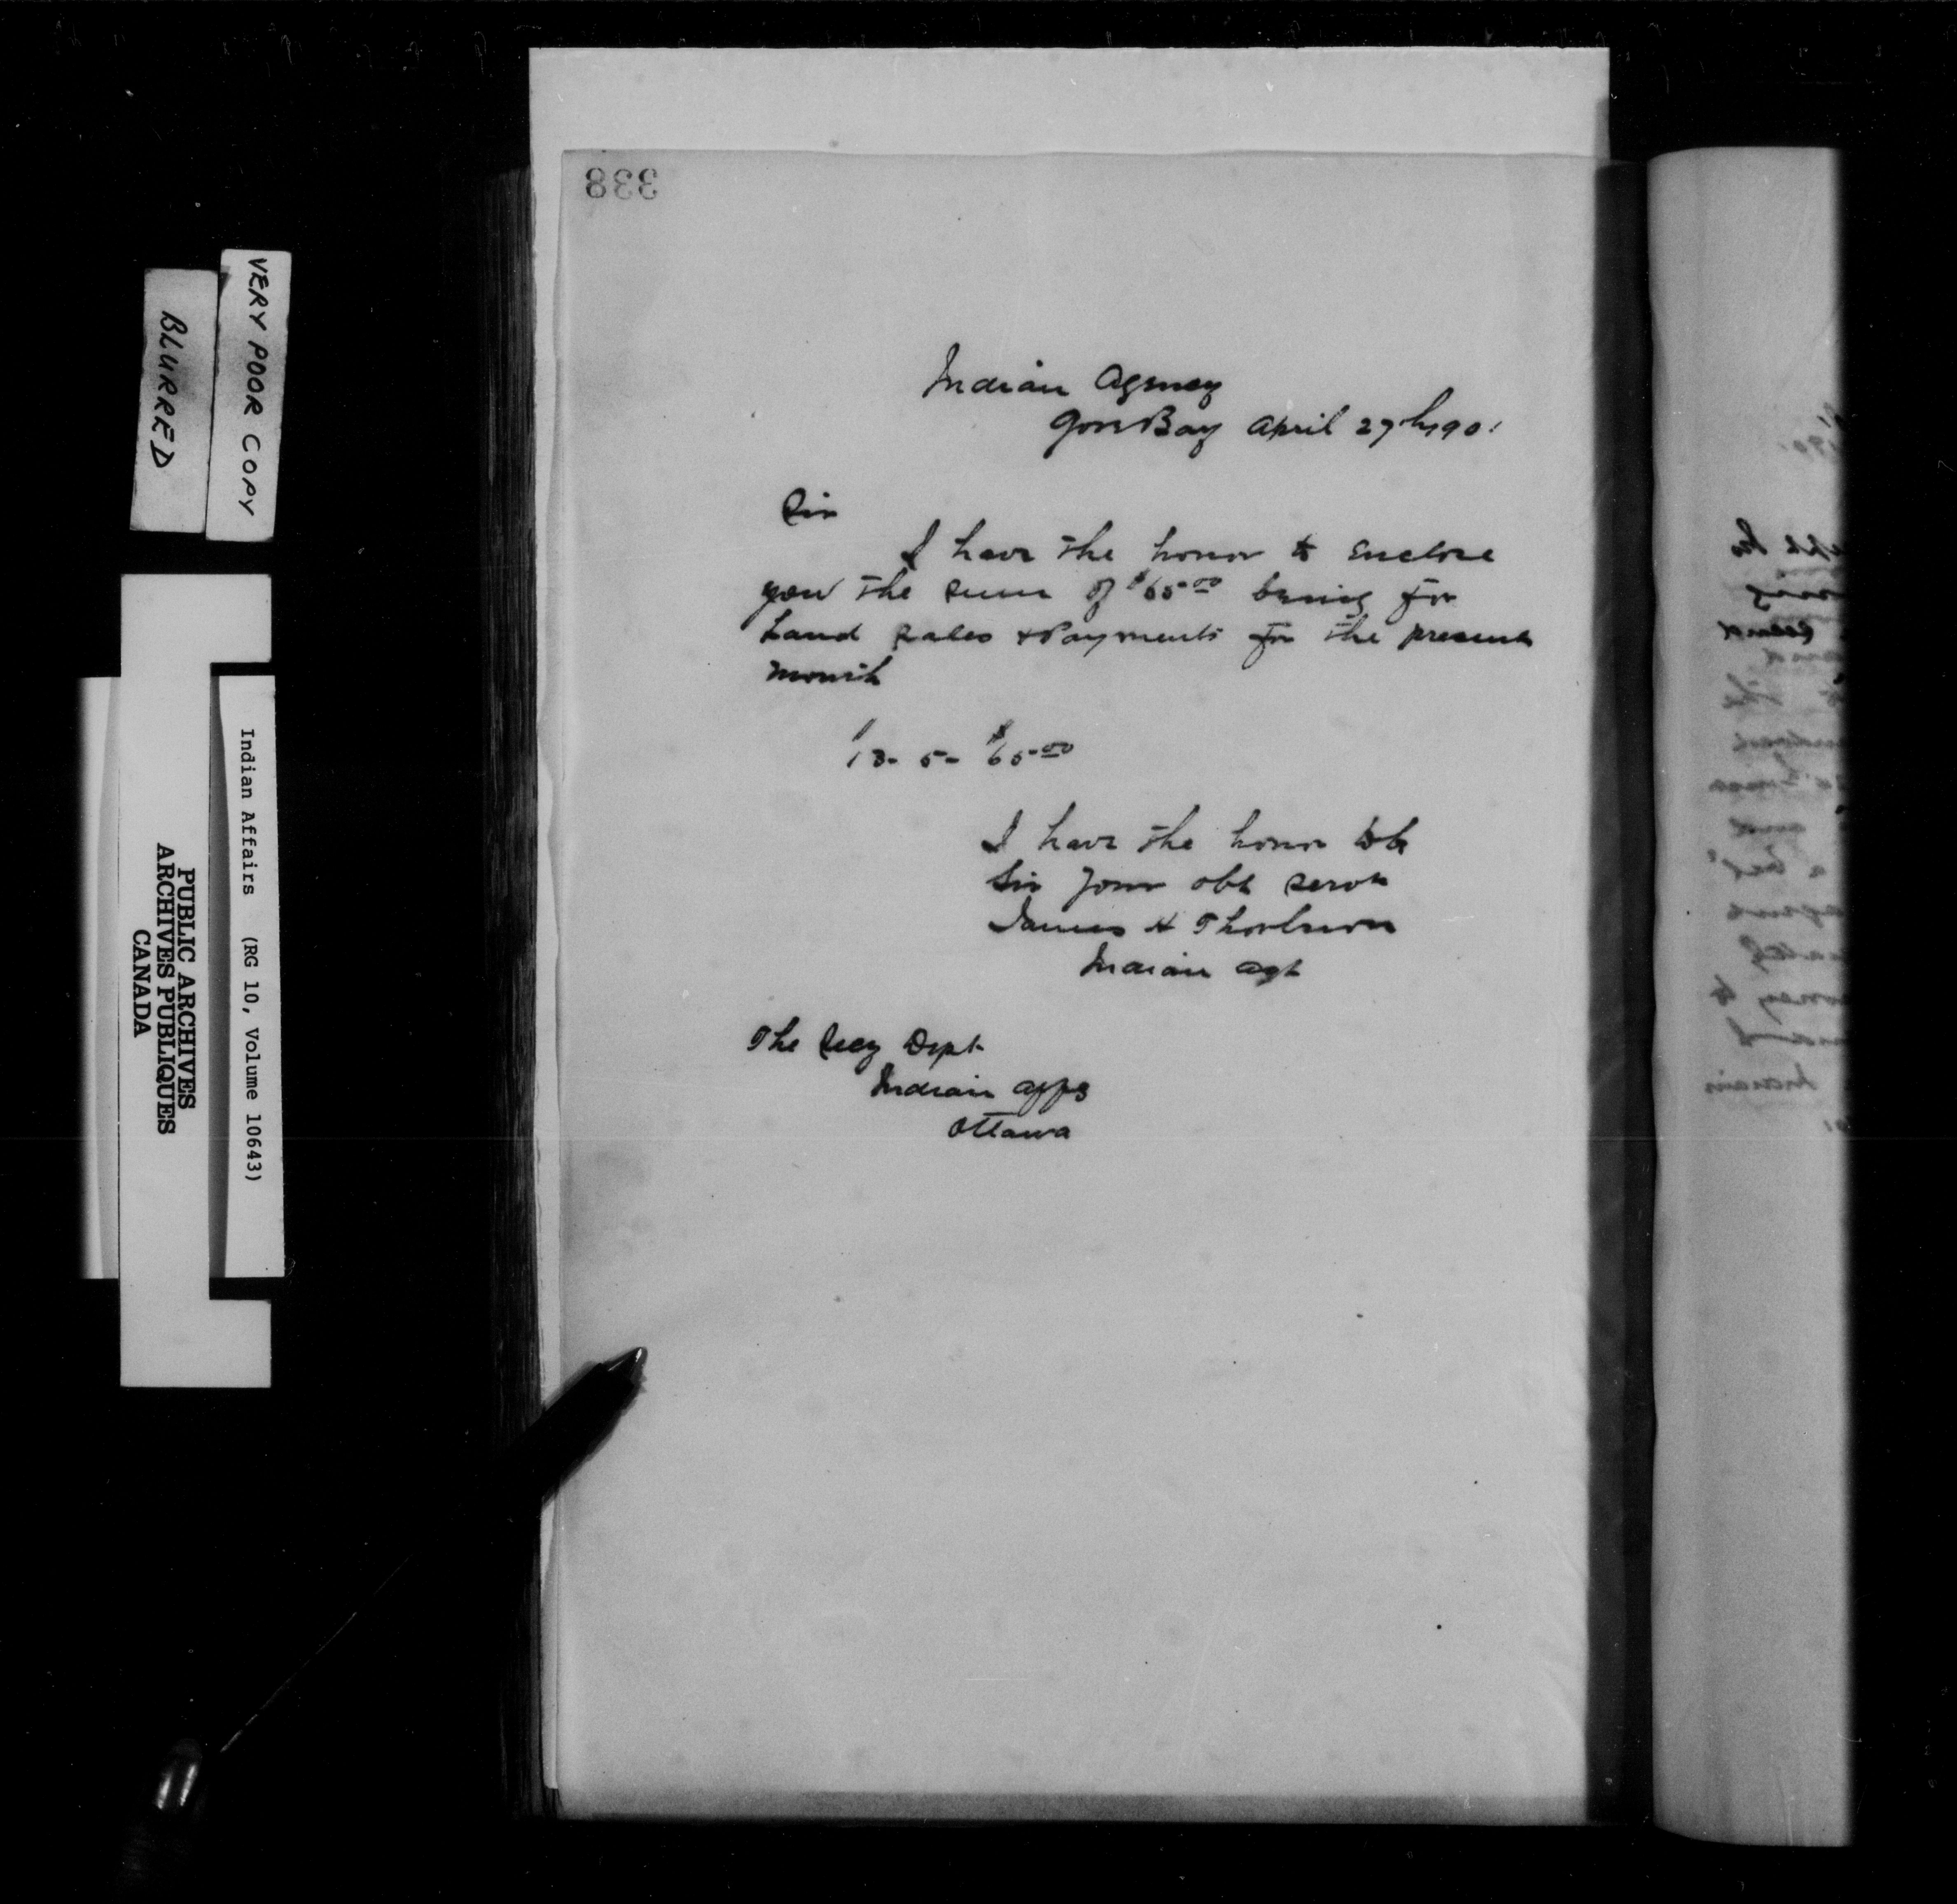 338
Indian Agency
Gore Bay April 27th 1901
Sir
I have the honor to enclose
you the sum of $65.00 being for
Land Sales & Payments for the present
month
13- 5- $65.00
I have the honor to be
Sir Your obt servt
James H Thorburn
Indian Agt
The Secy Dept
Indian Affs
Ottawa
VERY POOR COPY
BLURRED
Indian Affairs (RG 10, Volume 10643)
PUBLIC ARCHIVES
ARCHIVES PUBLIQUES
CANADA